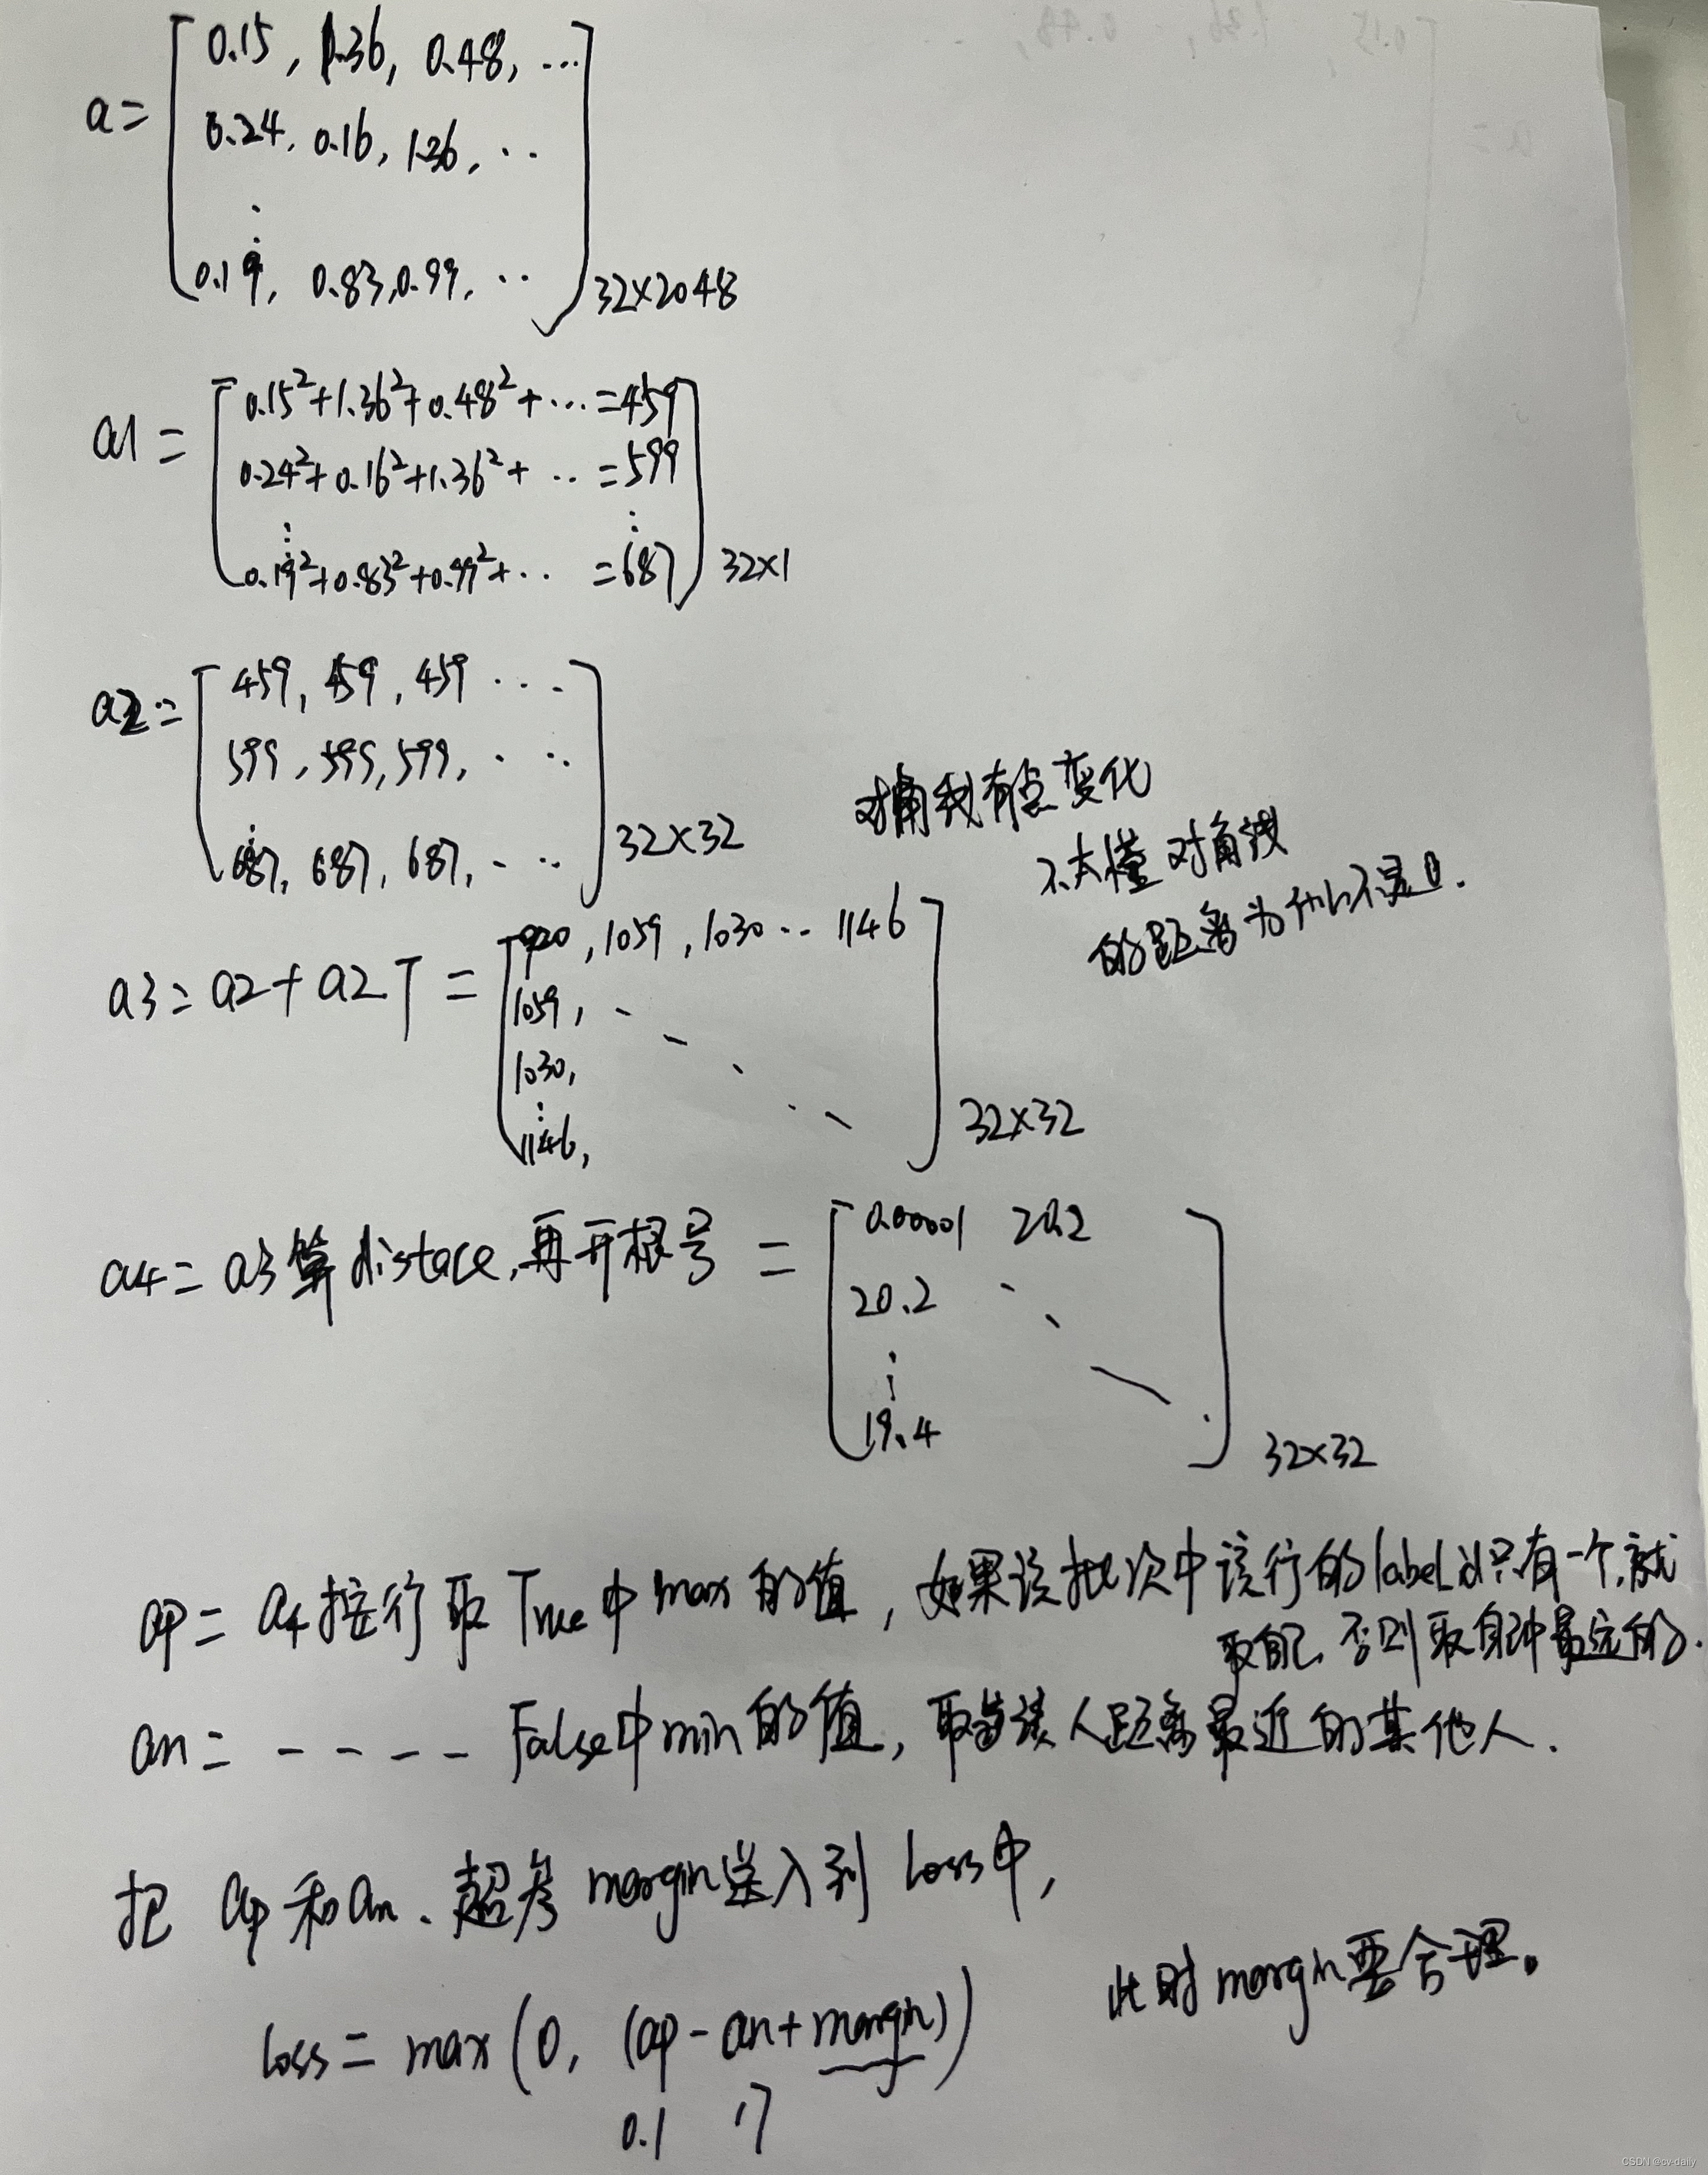 a = [ 0.15, 1.36, 0.48, ...
0.24, 0.16, 1.36, ..
⋮
0.19, 0.83, 0.99, .. ] 32×2048
a1 = [ 0.15²+1.36²+0.48²+...=459
0.24²+0.16²+1.36²+ .. =599
⋮ ⋮
0.19²+0.83²+0.99²+.. =687 ] 32×1
a2 = [ 459, 459, 459 ...
599, 599, 599, ...
⋮
687, 687, 687, ... ] 32×32
对角线有点变化
不太懂对角线
的距离为什么不是0.
a3 = a2 + a2T = [ 920, 1059, 1030 .. 1146
1059,
1030,
⋮
1146, ] 32×32
a4 = a3算distace,再开根号 = [ 0.00001 20.2
20.2
⋮
19.4 ] 32×32
ap = a4按行取True中max的值,如果该批次中该行的label id只有一个,就
取自己,否则取自己中最远的.
an = - - - - False中min的值,取与该人距离最近的其他人.
把 ap和an、超参margin送入到loss中,
此时margin要合理。
loss = max(0, (ap-an+margin))
0.1 17
CSDN @cv-daily